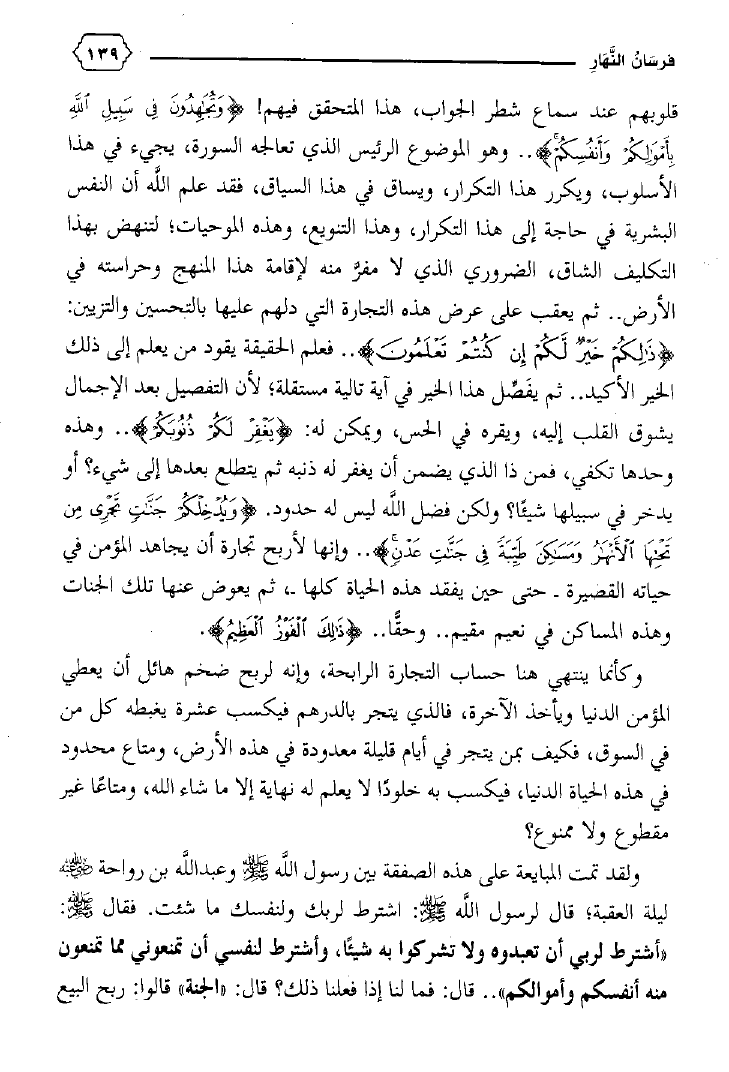 فرسَانُ النَّهَارِ
١٣٩
قلوبهم عند سماع شطر الجواب، هذا المتحقق فيهم! ﴿وَتُجَٰهِدُونَ فِى سَبِيلِ ٱللَّهِ
بِأَمْوَٰلِكُمْ وَأَنفُسِكُمْ﴾.. وهو الموضوع الرئيس الذي تعالجه السورة، يجيء في هذا
الأسلوب، ويكرر هذا التكرار، ويساق في هذا السياق، فقد علم اللَّه أن النفس
البشرية في حاجة إلى هذا التكرار، وهذا التنويع، وهذه الموحيات؛ لتنهض بهذا
التكليف الشاق، الضروري الذي لا مفرَّ منه لإقامة هذا المنهج وحراسته في
الأرض.. ثم يعقب على عرض هذه التجارة التي دلهم عليها بالتحسين والتزيين:
﴿ذَٰلِكُمْ خَيْرٌ لَّكُمْ إِن كُنتُمْ تَعْلَمُونَ﴾.. فعلم الحقيقة يقود من يعلم إلى ذلك
الخير الأكيد.. ثم يفَصِّل هذا الخير في آية تالية مستقلة؛ لأن التفصيل بعد الإجمال
يشوق القلب إليه، ويقره في الحس، ويمكن له: ﴿يَغْفِرْ لَكُمْ ذُنُوبَكُمْ﴾.. وهذه
وحدها تكفي، فمن ذا الذي يضمن أن يغفر له ذنبه ثم يتطلع بعدها إلى شيء؟ أو
يدخر في سبيلها شيئًا؟ ولكن فضل اللَّه ليس له حدود. ﴿وَيُدْخِلْكُمْ جَنَّٰتٍ تَجْرِى مِن
تَحْتِهَا ٱلْأَنْهَٰرُ وَمَسَٰكِنَ طَيِّبَةً فِى جَنَّٰتِ عَدْنٍ﴾.. وإنها لأربح تجارة أن يجاهد المؤمن في
حياته القصيرة ـ حتى حين يفقد هذه الحياة كلها ـ، ثم يعوض عنها تلك الجنات
وهذه المساكن في نعيم مقيم.. وحقًّا.. ﴿ذَٰلِكَ ٱلْفَوْزُ ٱلْعَظِيمُ﴾.
وكأنما ينتهي هنا حساب التجارة الرابحة، وإنه لربح ضخم هائل أن يعطي
المؤمن الدنيا ويأخذ الآخرة، فالذي يتجر بالدرهم فيكسب عشرة يغبطه كل من
في السوق، فكيف بمن يتجر في أيام قليلة معدودة في هذه الأرض، ومتاع محدود
في هذه الحياة الدنيا، فيكسب به خلودًا لا يعلم له نهاية إلا ما شاء الله، ومتاعًا غير
مقطوع ولا ممنوع؟
ولقد تمت المبايعة على هذه الصفقة بين رسول اللَّه ﷺ وعبداللَّه بن رواحة رضي الله عنه
ليلة العقبة؛ قال لرسول اللَّه ﷺ: اشترط لربك ولنفسك ما شئت. فقال ﷺ:
«أشترط لربي أن تعبدوه ولا تشركوا به شيئًا، وأشترط لنفسي أن تمنعوني مما تمنعون
منه أنفسكم وأموالكم».. قال: فما لنا إذا فعلنا ذلك؟ قال: «الجنة» قالوا: ربح البيع